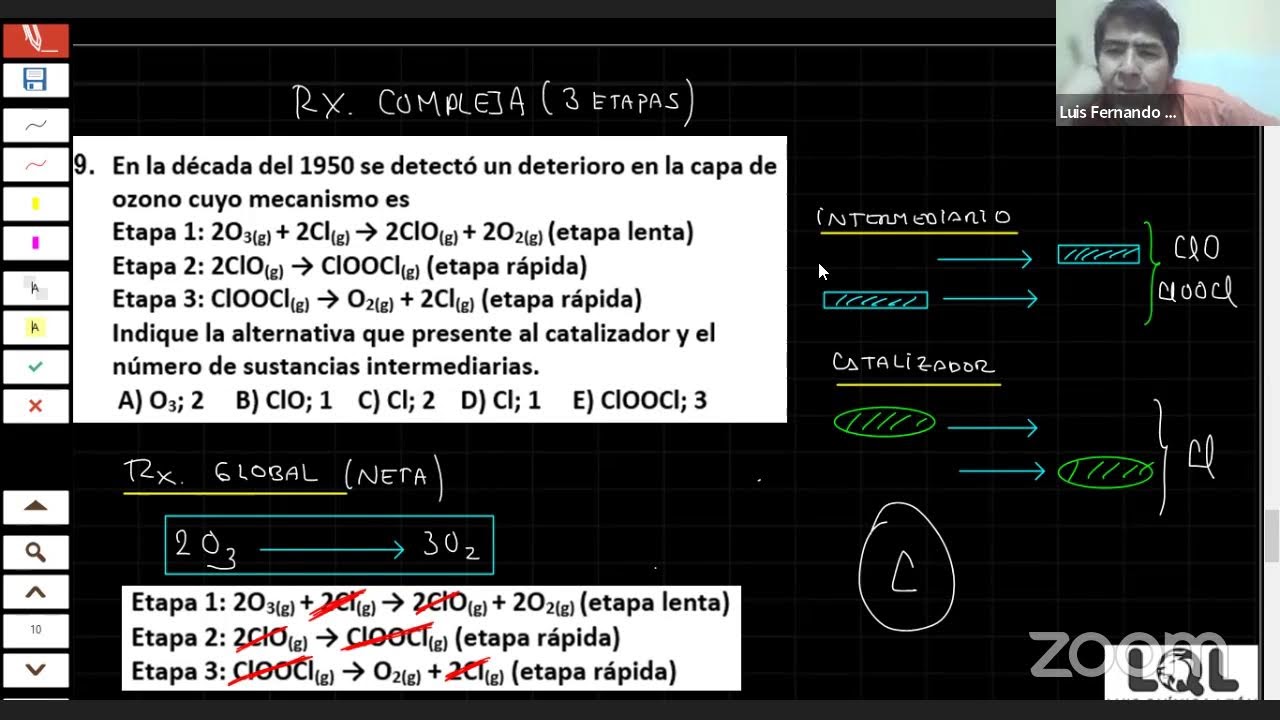 Luis Fernando ...
RX. COMPLEJA (3 ETAPAS)
9. En la década del 1950 se detectó un deterioro en la capa de
ozono cuyo mecanismo es
Etapa 1: 2O₃(g) + 2Cl(g) → 2ClO(g) + 2O₂(g) (etapa lenta)
Etapa 2: 2ClO(g) → ClOOCl(g) (etapa rápida)
Etapa 3: ClOOCl(g) → O₂(g) + 2Cl(g) (etapa rápida)
Indique la alternativa que presente al catalizador y el
número de sustancias intermediarias.
A) O₃; 2 B) ClO; 1 C) Cl; 2 D) Cl; 1 E) ClOOCl; 3
INTERMEDIARIO
ClO
ClOOCl
CATALIZADOR
Cl
C
RX. GLOBAL (NETA)
2 O₃ → 3O₂
Etapa 1: 2O₃(g) + 2Cl(g) → 2ClO(g) + 2O₂(g) (etapa lenta)
Etapa 2: 2ClO(g) → ClOOCl(g) (etapa rápida)
Etapa 3: ClOOCl(g) → O₂(g) + 2Cl(g) (etapa rápida)
10
zoom
LQL